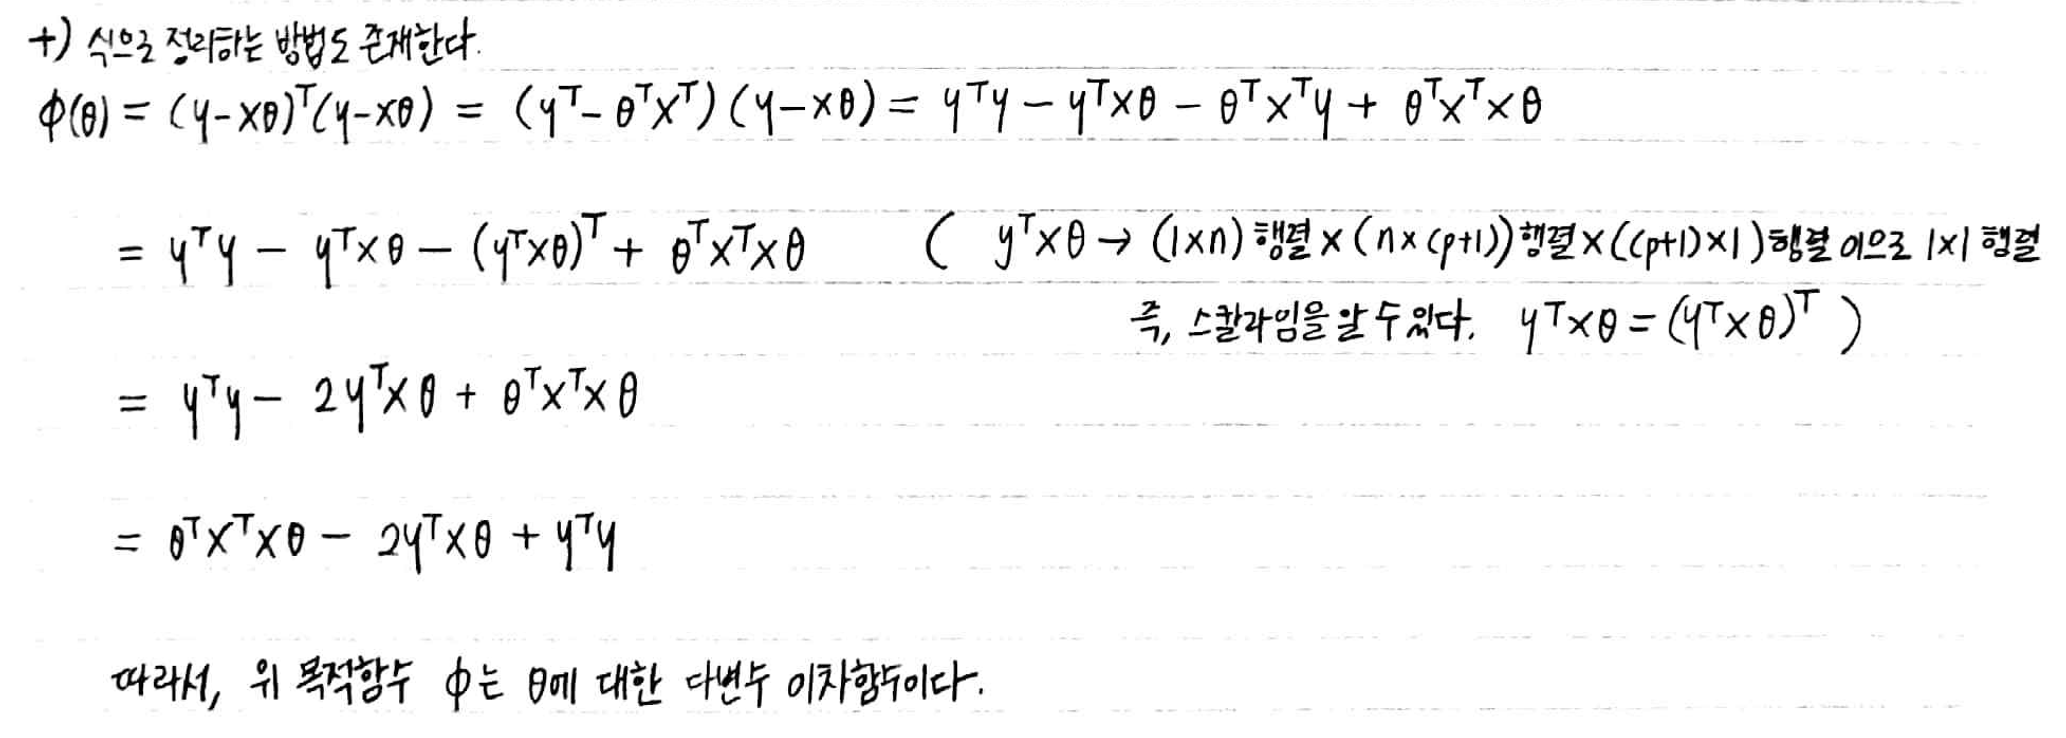 +) 식으로 정리하는 방법도 존재한다.
ϕ(θ) = (y-Xθ)ᵀ(y-Xθ) = (yᵀ - θᵀXᵀ)(y-Xθ) = yᵀy - yᵀXθ - θᵀXᵀy + θᵀXᵀXθ
= yᵀy - yᵀXθ - (yᵀXθ)ᵀ + θᵀXᵀXθ ( yᵀXθ → (1×n) 행렬 × (n×(p+1)) 행렬 × ((p+1)×1) 행렬 이으로 1×1 행렬
즉, 스칼라임을 알 수 있다. yᵀXθ = (yᵀXθ)ᵀ )
= yᵀy - 2yᵀXθ + θᵀXᵀXθ
= θᵀXᵀXθ - 2yᵀXθ + yᵀy
따라서, 위 목적함수 ϕ는 θ에 대한 다변수 이차함수이다.